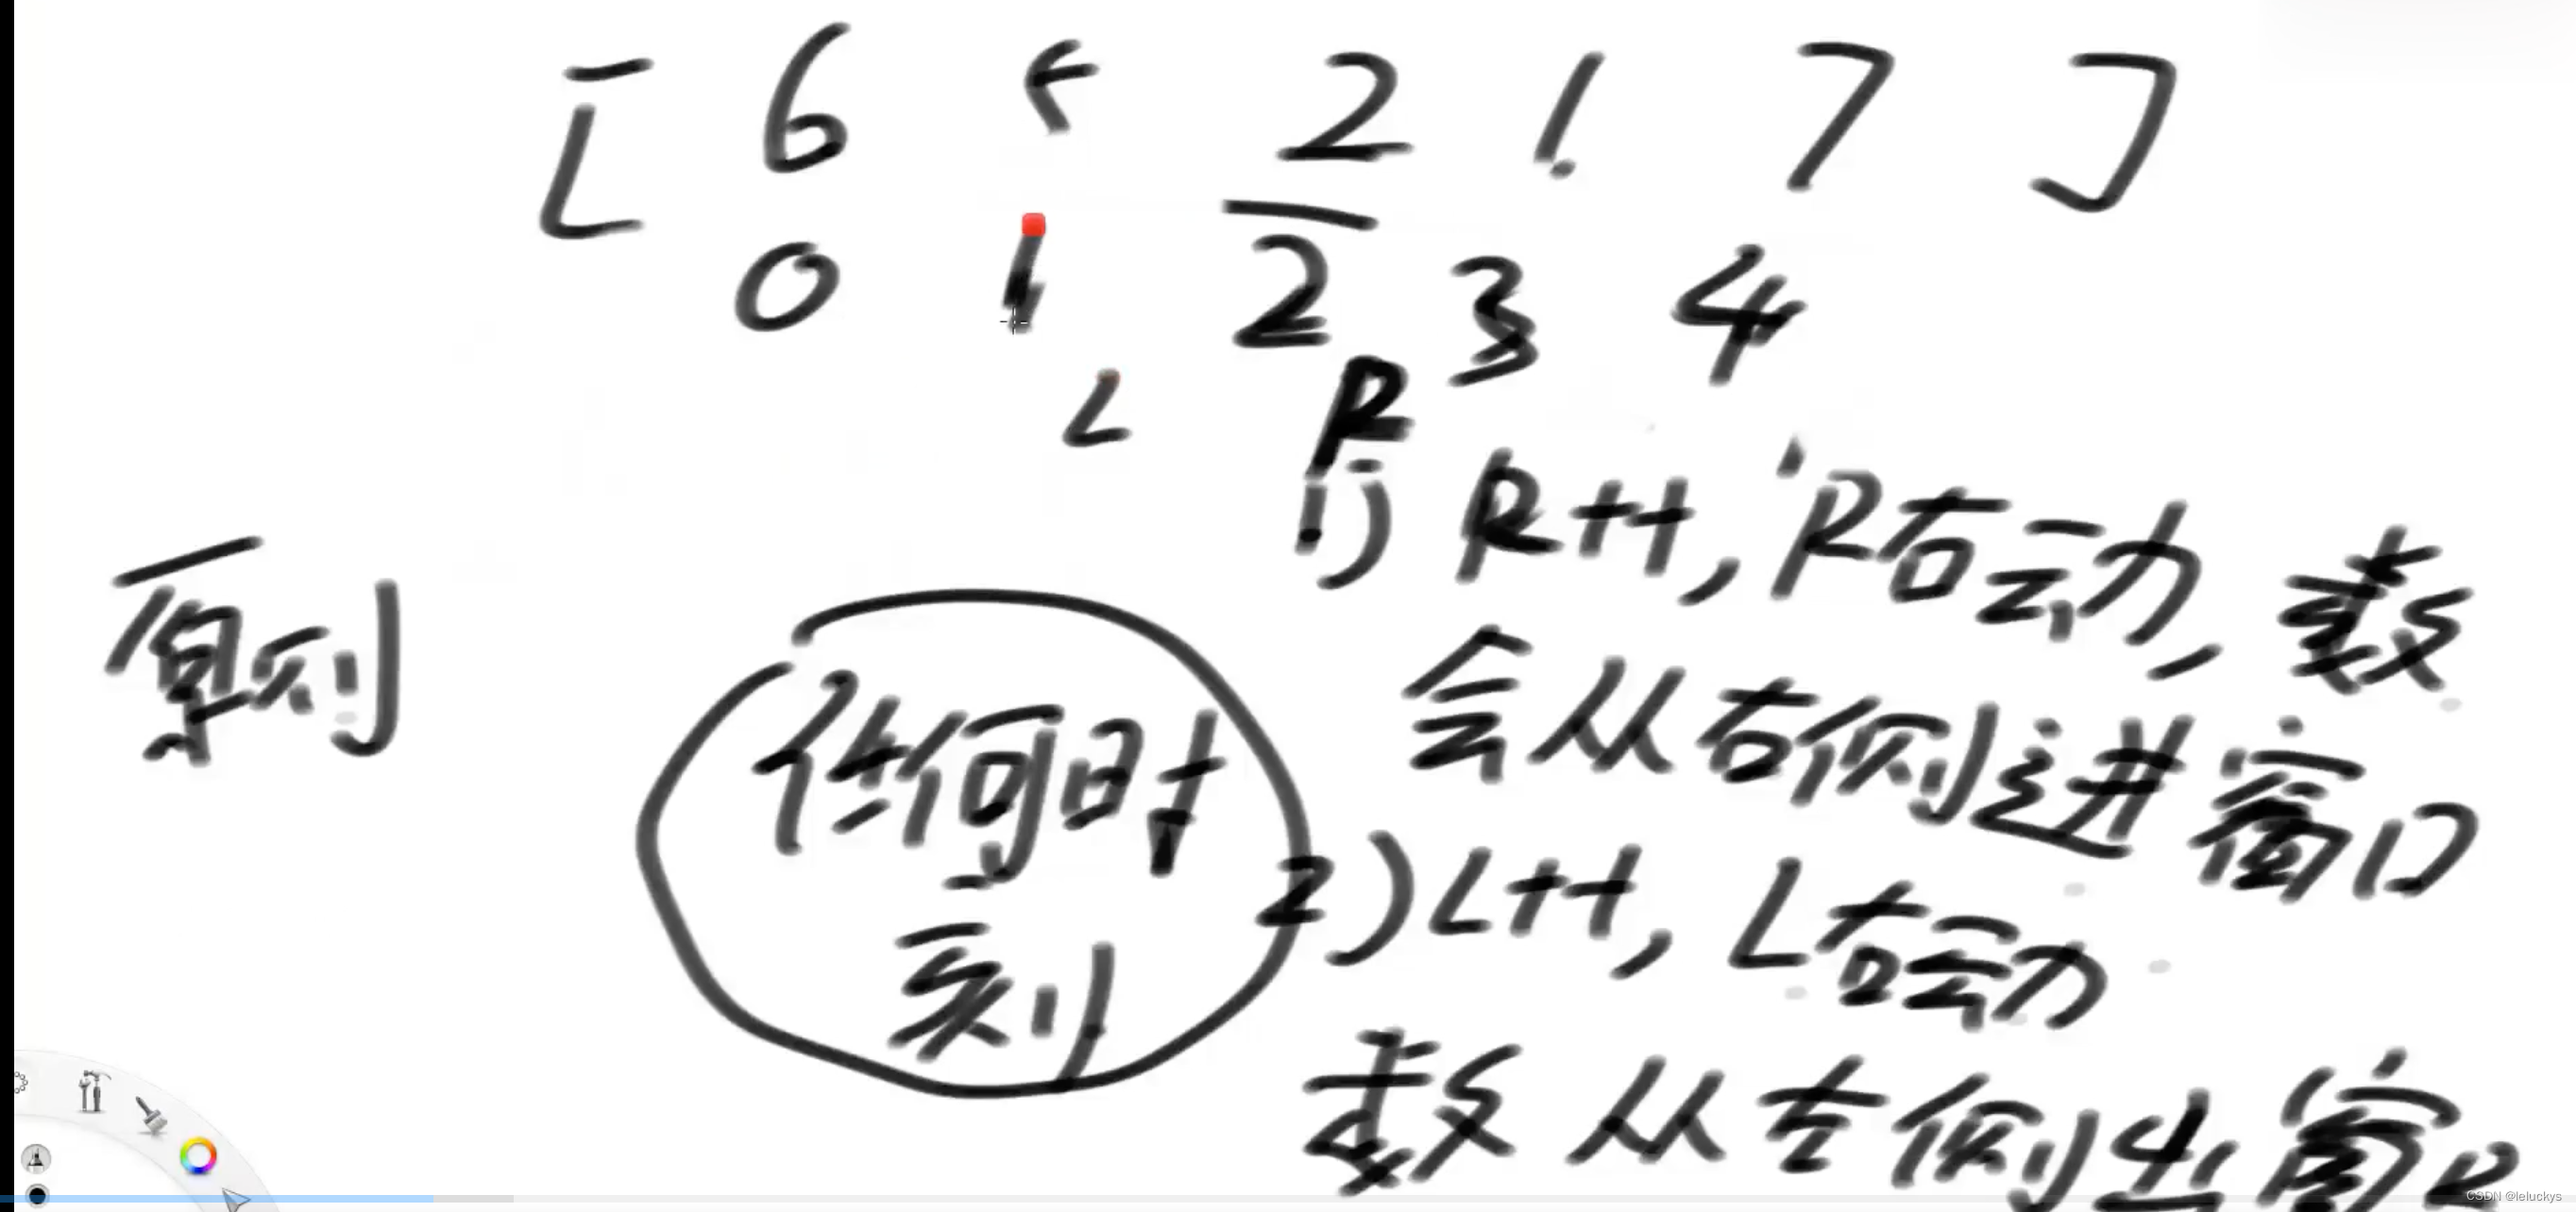 [ 6 2 1 7 ]
0 1 2 3 4
L R
原则
1) R++, R右动, 数
会从右侧进窗口
任何时
刻
2) L++, L右动
数从左侧出窗口
CSDN @leluckys